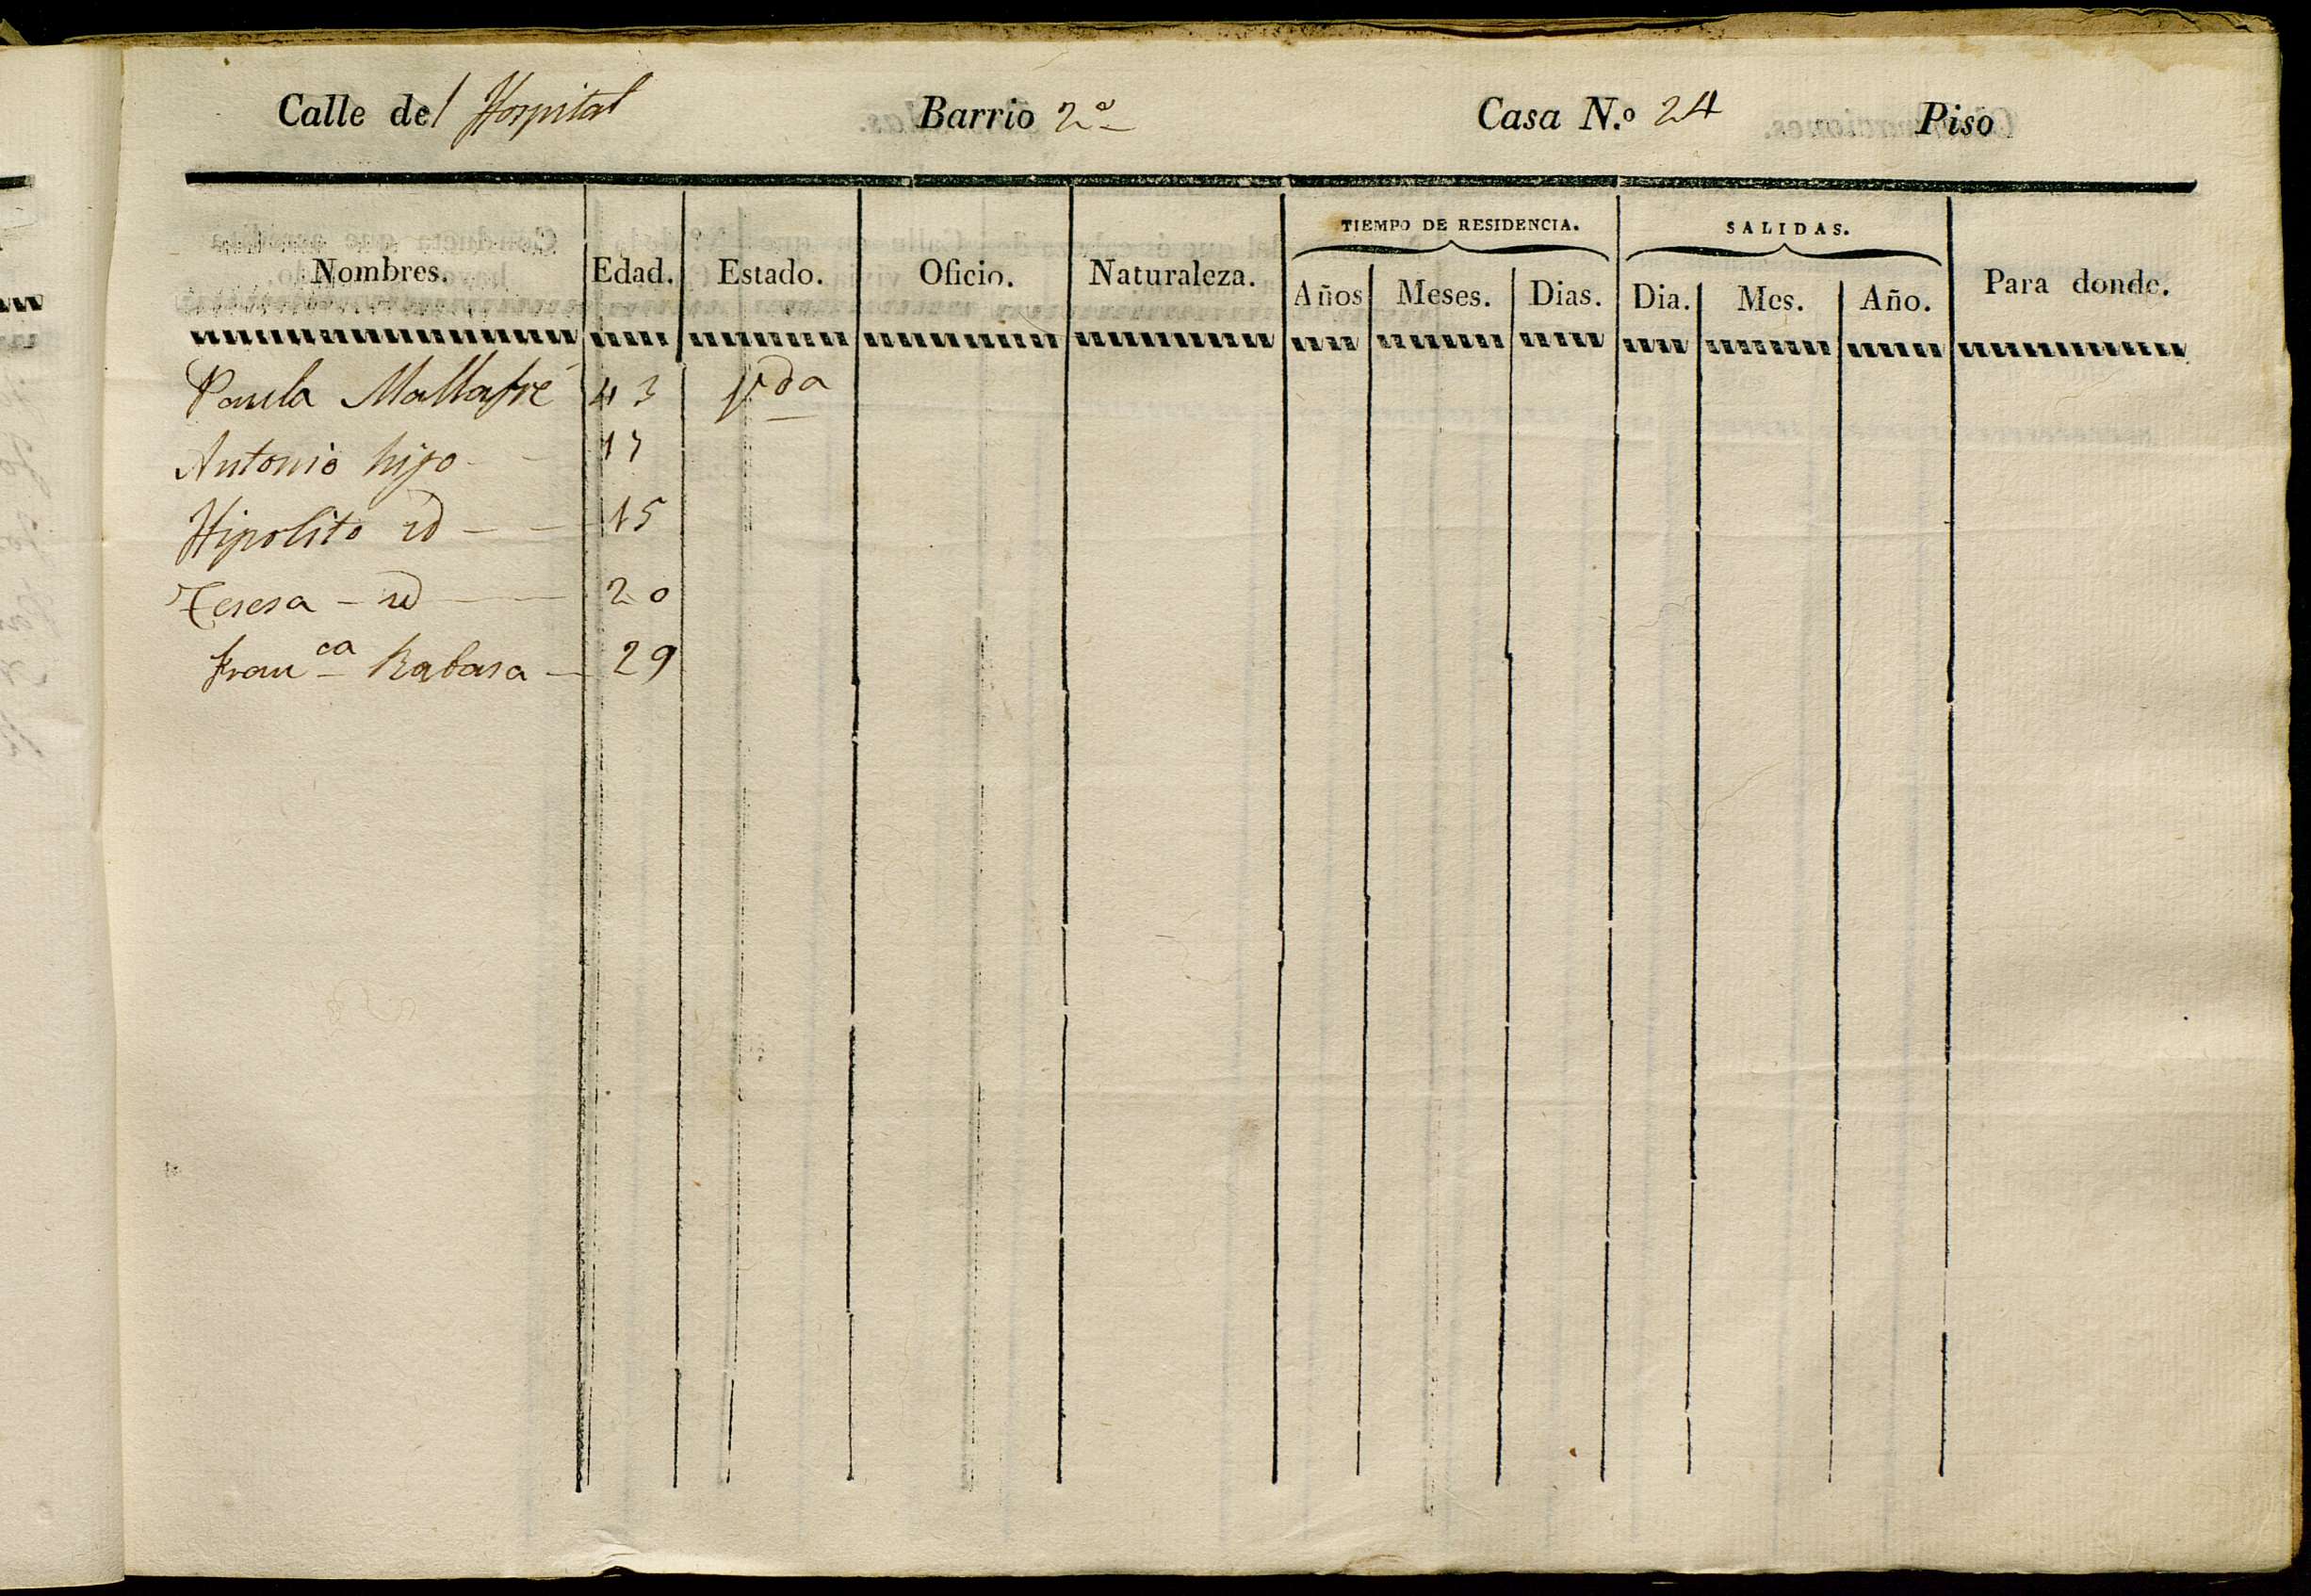 Calle del Hospital Barrio 2º Casa N.º 24 Piso
TIEMPO DE RESIDENCIA. SALIDAS.
Nombres. Edad. Estado. Oficio. Naturaleza. Años Meses. Dias. Dia. Mes. Año. Para donde.
Paula Mallafré 43 Vda
Antonio hijo - - 17
Hipolito id - - 15
Teresa - id - 20
Franca Rabasa - 29